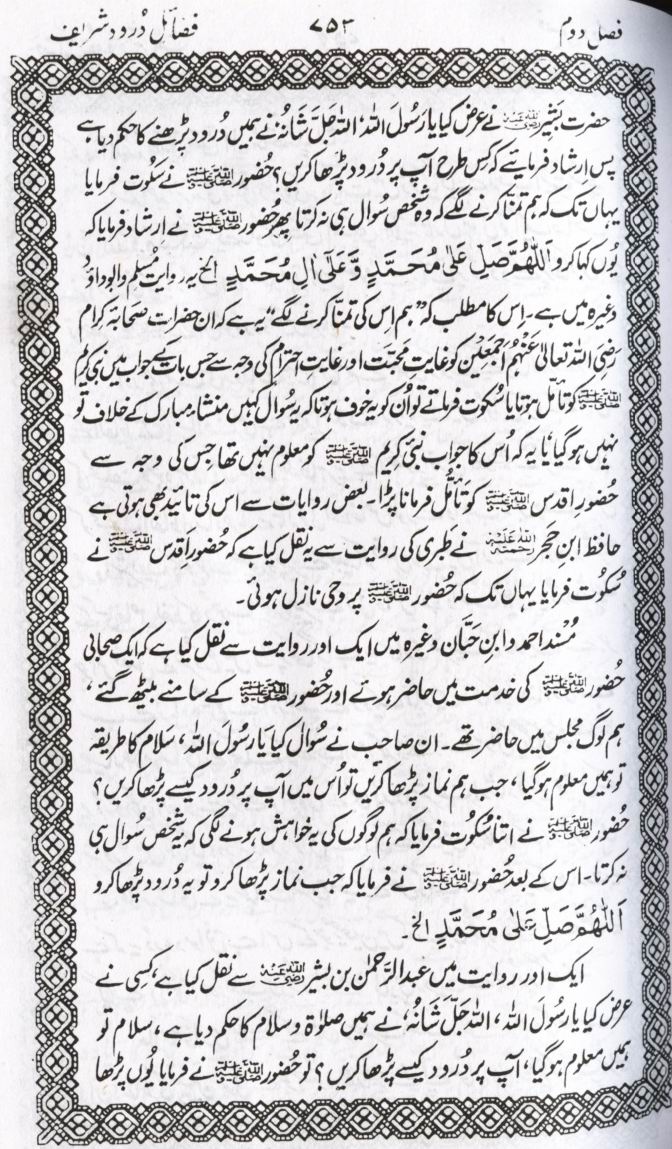 فصل دوم ۷۵۳ فضائل درود شریف
حضرت بشیر رضی اللہ عنہ نے عرض کیا یا رسول اللہ، اللہ جل شانہ نے ہمیں درود پڑھنے کا حکم دیا ہے
پس ارشاد فرمایئے کہ کس طرح آپ پر درود پڑھا کریں؟ حضور ﷺ نے سکوت فرمایا
یہاں تک کہ ہم تمنا کرنے لگے کہ وہ شخص سوال ہی نہ کرتا پھر حضور ﷺ نے ارشاد فرمایا کہ
یوں کہا کرو اَللّٰهُمَّ صَلِّ عَلٰی مُحَمَّدٍ وَّعَلٰی اٰلِ مُحَمَّدٍ الخ یہ روایت مسلم و ابوداؤد
وغیرہ میں ہے۔ اس کا مطلب کہ ”ہم اس کی تمنا کرنے لگے“ یہ ہے کہ ان حضرات صحابہ کرام
رضی اللہ تعالیٰ عنہم اجمعین کو غایتِ محبت اور غایتِ احترام کی وجہ سے جس بات کے جواب میں نبی کریم
ﷺ کو تامل ہوتا یا سکوت فرماتے تو اُن کو یہ خوف ہوتا کہ یہ سوال کہیں منشاء مبارک کے خلاف تو
نہیں ہو گیا، یا یہ کہ اُس کا جواب نبی کریم ﷺ کو معلوم نہیں تھا جس کی وجہ سے
حضورِ اقدس ﷺ کو تأمُّل فرمانا پڑا۔ بعض روایات سے اس کی تائید بھی ہوتی ہے
حافظ ابنِ حجر رحمۃ اللہ علیہ نے طبری کی روایت سے یہ نقل کیا ہے کہ حضورِ اقدس ﷺ نے
سکوت فرمایا یہاں تک کہ حضور ﷺ پر وحی نازل ہوئی۔
مسند احمد و ابنِ حبان وغیرہ میں ایک اور روایت سے نقل کیا ہے کہ ایک صحابی
حضور ﷺ کی خدمت میں حاضر ہوئے اور حضور ﷺ کے سامنے بیٹھ گئے،
ہم لوگ مجلس میں حاضر تھے۔ ان صاحب نے سوال کیا یا رسول اللہ، سلام کا طریقہ
تو ہمیں معلوم ہو گیا، جب ہم نماز پڑھا کریں تو اُس میں آپ پر درود کیسے پڑھا کریں؟
حضور ﷺ نے اتنا سکوت فرمایا کہ ہم لوگوں کی یہ خواہش ہونے لگی کہ یہ شخص سوال ہی
نہ کرتا۔ اس کے بعد حضور ﷺ نے فرمایا کہ جب نماز پڑھا کرو تو یہ درود پڑھا کرو
اَللّٰهُمَّ صَلِّ عَلٰی مُحَمَّدٍ الخ۔
ایک اور روایت میں عبدالرحمٰن بن بشیر رضی اللہ عنہ سے نقل کیا ہے، کسی نے
عرض کیا یا رسول اللہ، اللہ جل شانہ، نے ہمیں صلوٰۃ و سلام کا حکم دیا ہے، سلام تو
ہمیں معلوم ہو گیا، آپ پر درود کیسے پڑھا کریں؟ تو حضور ﷺ نے فرمایا یوں پڑھا